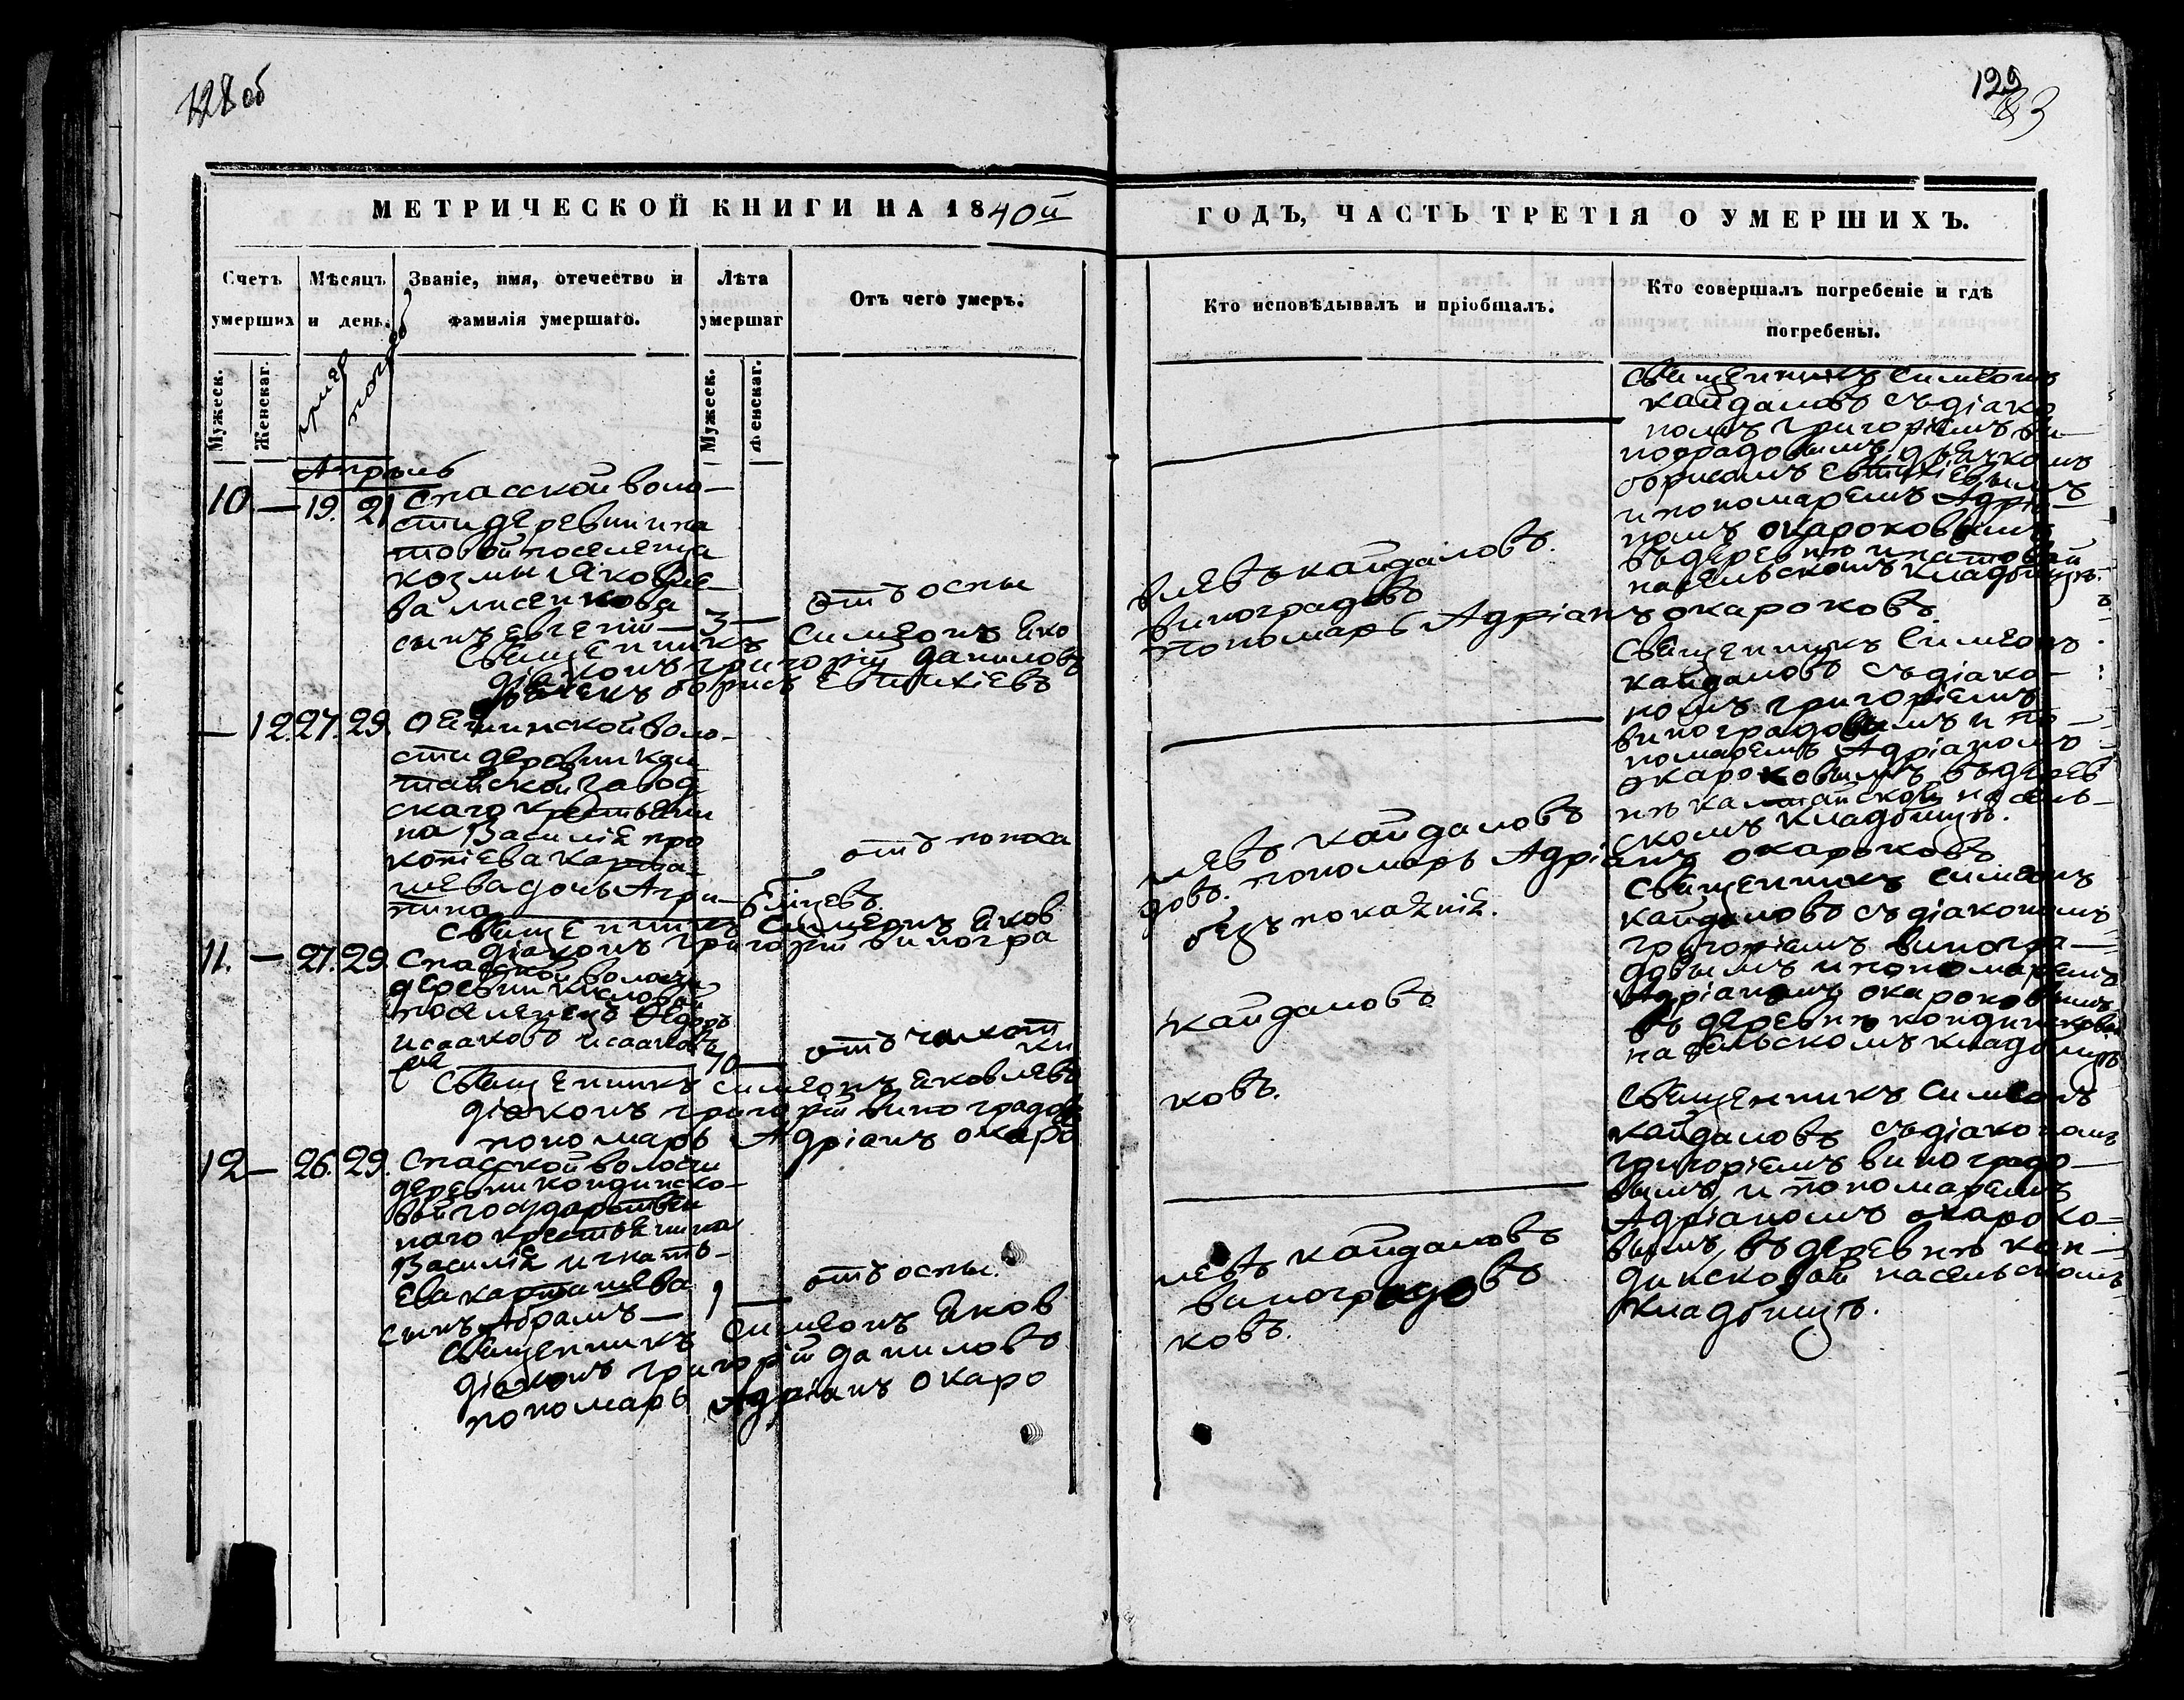 128 об
129
83
МЕТРИЧЕСКОЙ КНИГИ НА 1840й
ГОДЪ, ЧАСТЬ ТРЕТІЯ О УМЕРШИХЪ.
Счетъ умерших
Мѣсяцъ и день.
Званіе, имя, отечество и фамилія умершаго.
Лѣта умершаг
Отъ чего умеръ.
Кто исповѣдывалъ и пріобщалъ.
Кто совершалъ погребеніе и гдѣ погребены.
Мужеск.
Женскаг.
Мужеск.
Женскаг.
Апрѣль
10 — 19. 21
Спасской воло-
сти деревни ипа
товой поселенца
козмы Яковле-
ва лисенкова
сынъ евгеній — 3 —
отъ оспы
священникъ Симеонъ Яко
влевъ кайдаловъ.
діаконъ григорій даниловъ
виноградовъ
дьячекъ борисъ Евтихіевъ
пономарь Адріанъ окароковъ.
Священникъ Симеонъ
кайдаловъ съ діако
номъ григоріемъ ви-
ноградовымъ, дьячкомъ
борисомъ Евтихіевымъ
и пономаремъ Адріа-
номъ окароковымъ
въ деревню ипатовой
на сельскомъ кладбищѣ.
— 12. 27. 29.
воло-
сти деревни кам
тайской завод
скаго крестьяни
на Василія про
копіева карта-
шева дочь Агри-
пина — 6 мцевъ.
отъ поноса
священникъ Симеонъ Яков
левъ кайдаловъ
діаконъ григорій виногра
довъ. пономарь Адріанъ окароковъ
Священникъ Симеонъ
кайдаловъ съ діако-
номъ григоріемъ
виноградовымъ и по-
номаремъ Адріаномъ
окароковымъ въ дерев
нѣ камтайской на сель-
скомъ кладбищѣ.
11. — 27. 29.
Спасской волости
деревни кисловой
поселенецъ Ѳедоръ
исааковъ исааковъ
70 —
отъ чахот
ки
безъ покаянія.
Священникъ Симеонъ Яковлевъ
кайдаловъ
діаконъ григорій виноградовъ
пономарь Адріанъ окаро
ковъ.
Священникъ Симеонъ
кайдаловъ съ діакономъ
григоріемъ виногра-
довымъ и пономаремъ
Адріаномъ окароковымъ
въ деревнѣ кондинсковой
на сельскомъ кладбищѣ
12 — 26. 29.
Спасской волости
деревни кондинско-
вой государствен
наго крестьянина
Василія игнать-
ева карташева
сынъ Абрамъ — 1 —
отъ оспы.
Священникъ Симеонъ Яков
левъ кайдаловъ
діаконъ григорій даниловъ
виноградовъ
пономарь Адріанъ окаро
ковъ.
Священникъ Симеонъ
кайдаловъ съ діакономъ
григоріемъ виноградо-
вымъ, и пономаремъ
Адріаномъ окароко-
вымъ, въ деревнѣ кон-
динсковой на сельскомъ
кладбищѣ.